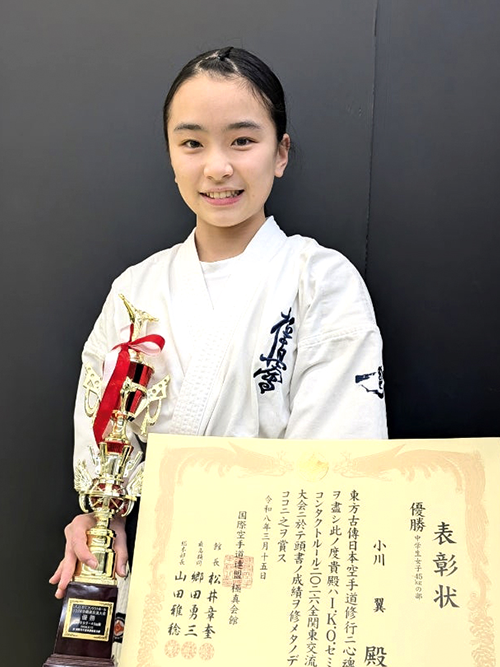 極真会
表彰状
優勝 中学生女子45kgの部
小川 翼 殿
東方古傳日本空手道修行ニ心魂
ヲ盡シ此ノ度貴殿ハI.K.O.セミ
コンタクトルール二〇二六全関東交流
大会ニ於テ頭書ノ成績ヲ修メタノデ
ココニ之ヲ賞ス
令和八年三月十五日
国際空手道連盟極真会館
館長 松井章奎
最高顧問 郷田勇三
山田雅稔
優勝